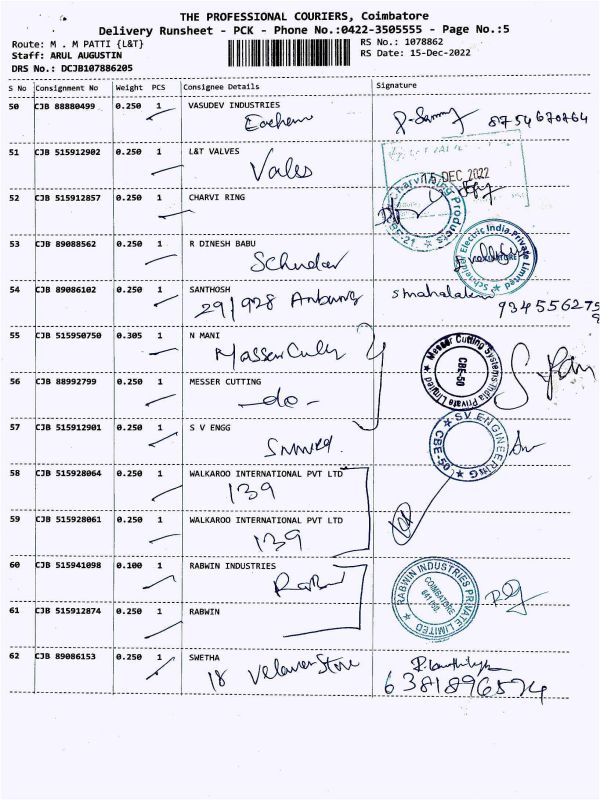 THE PROFESSIONAL COURIERS, Coimbatore
Delivery Runsheet - PCK - Phone No.:0422-3505555 - Page No.:5
Route: M . M PATTI {L&T}
RS No.: 1078862
Staff: ARUL AUGUSTIN
RS Date: 15-Dec-2022
DRS No.: DCJB107886205
S No Consignment No Weight PCS Consignee Details Signature
50 CJB 88880499 0.250 1 VASUDEV INDUSTRIES
8754670764
51 CJB 515912902 0.250 1 L&T VALVES
15 DEC 2022
52 CJB 515912857 0.250 1 CHARVI RING
Charvi Ring Products
53 CJB 89088562 0.250 1 R DINESH BABU
Schneider Electric India Private Limited
54 CJB 89086102 0.250 1 SANTHOSH
29/928
55 CJB 515950750 0.305 1 N MANI
Messer Cutting Systems India Private Limited
CBE-50
56 CJB 88992799 0.250 1 MESSER CUTTING
-do-
57 CJB 515912901 0.250 1 S V ENGG
SV ENGINEERING
CBE-50
58 CJB 515928064 0.250 1 WALKAROO INTERNATIONAL PVT LTD
139
59 CJB 515928061 0.250 1 WALKAROO INTERNATIONAL PVT LTD
139
60 CJB 515941098 0.100 1 RABWIN INDUSTRIES
RABWIN INDUSTRIES PRIVATE LIMITED
COIMBATORE
61 CJB 515912874 0.250 1 RABWIN
62 CJB 89086153 0.250 1 SWETHA
18 Store
6381896574